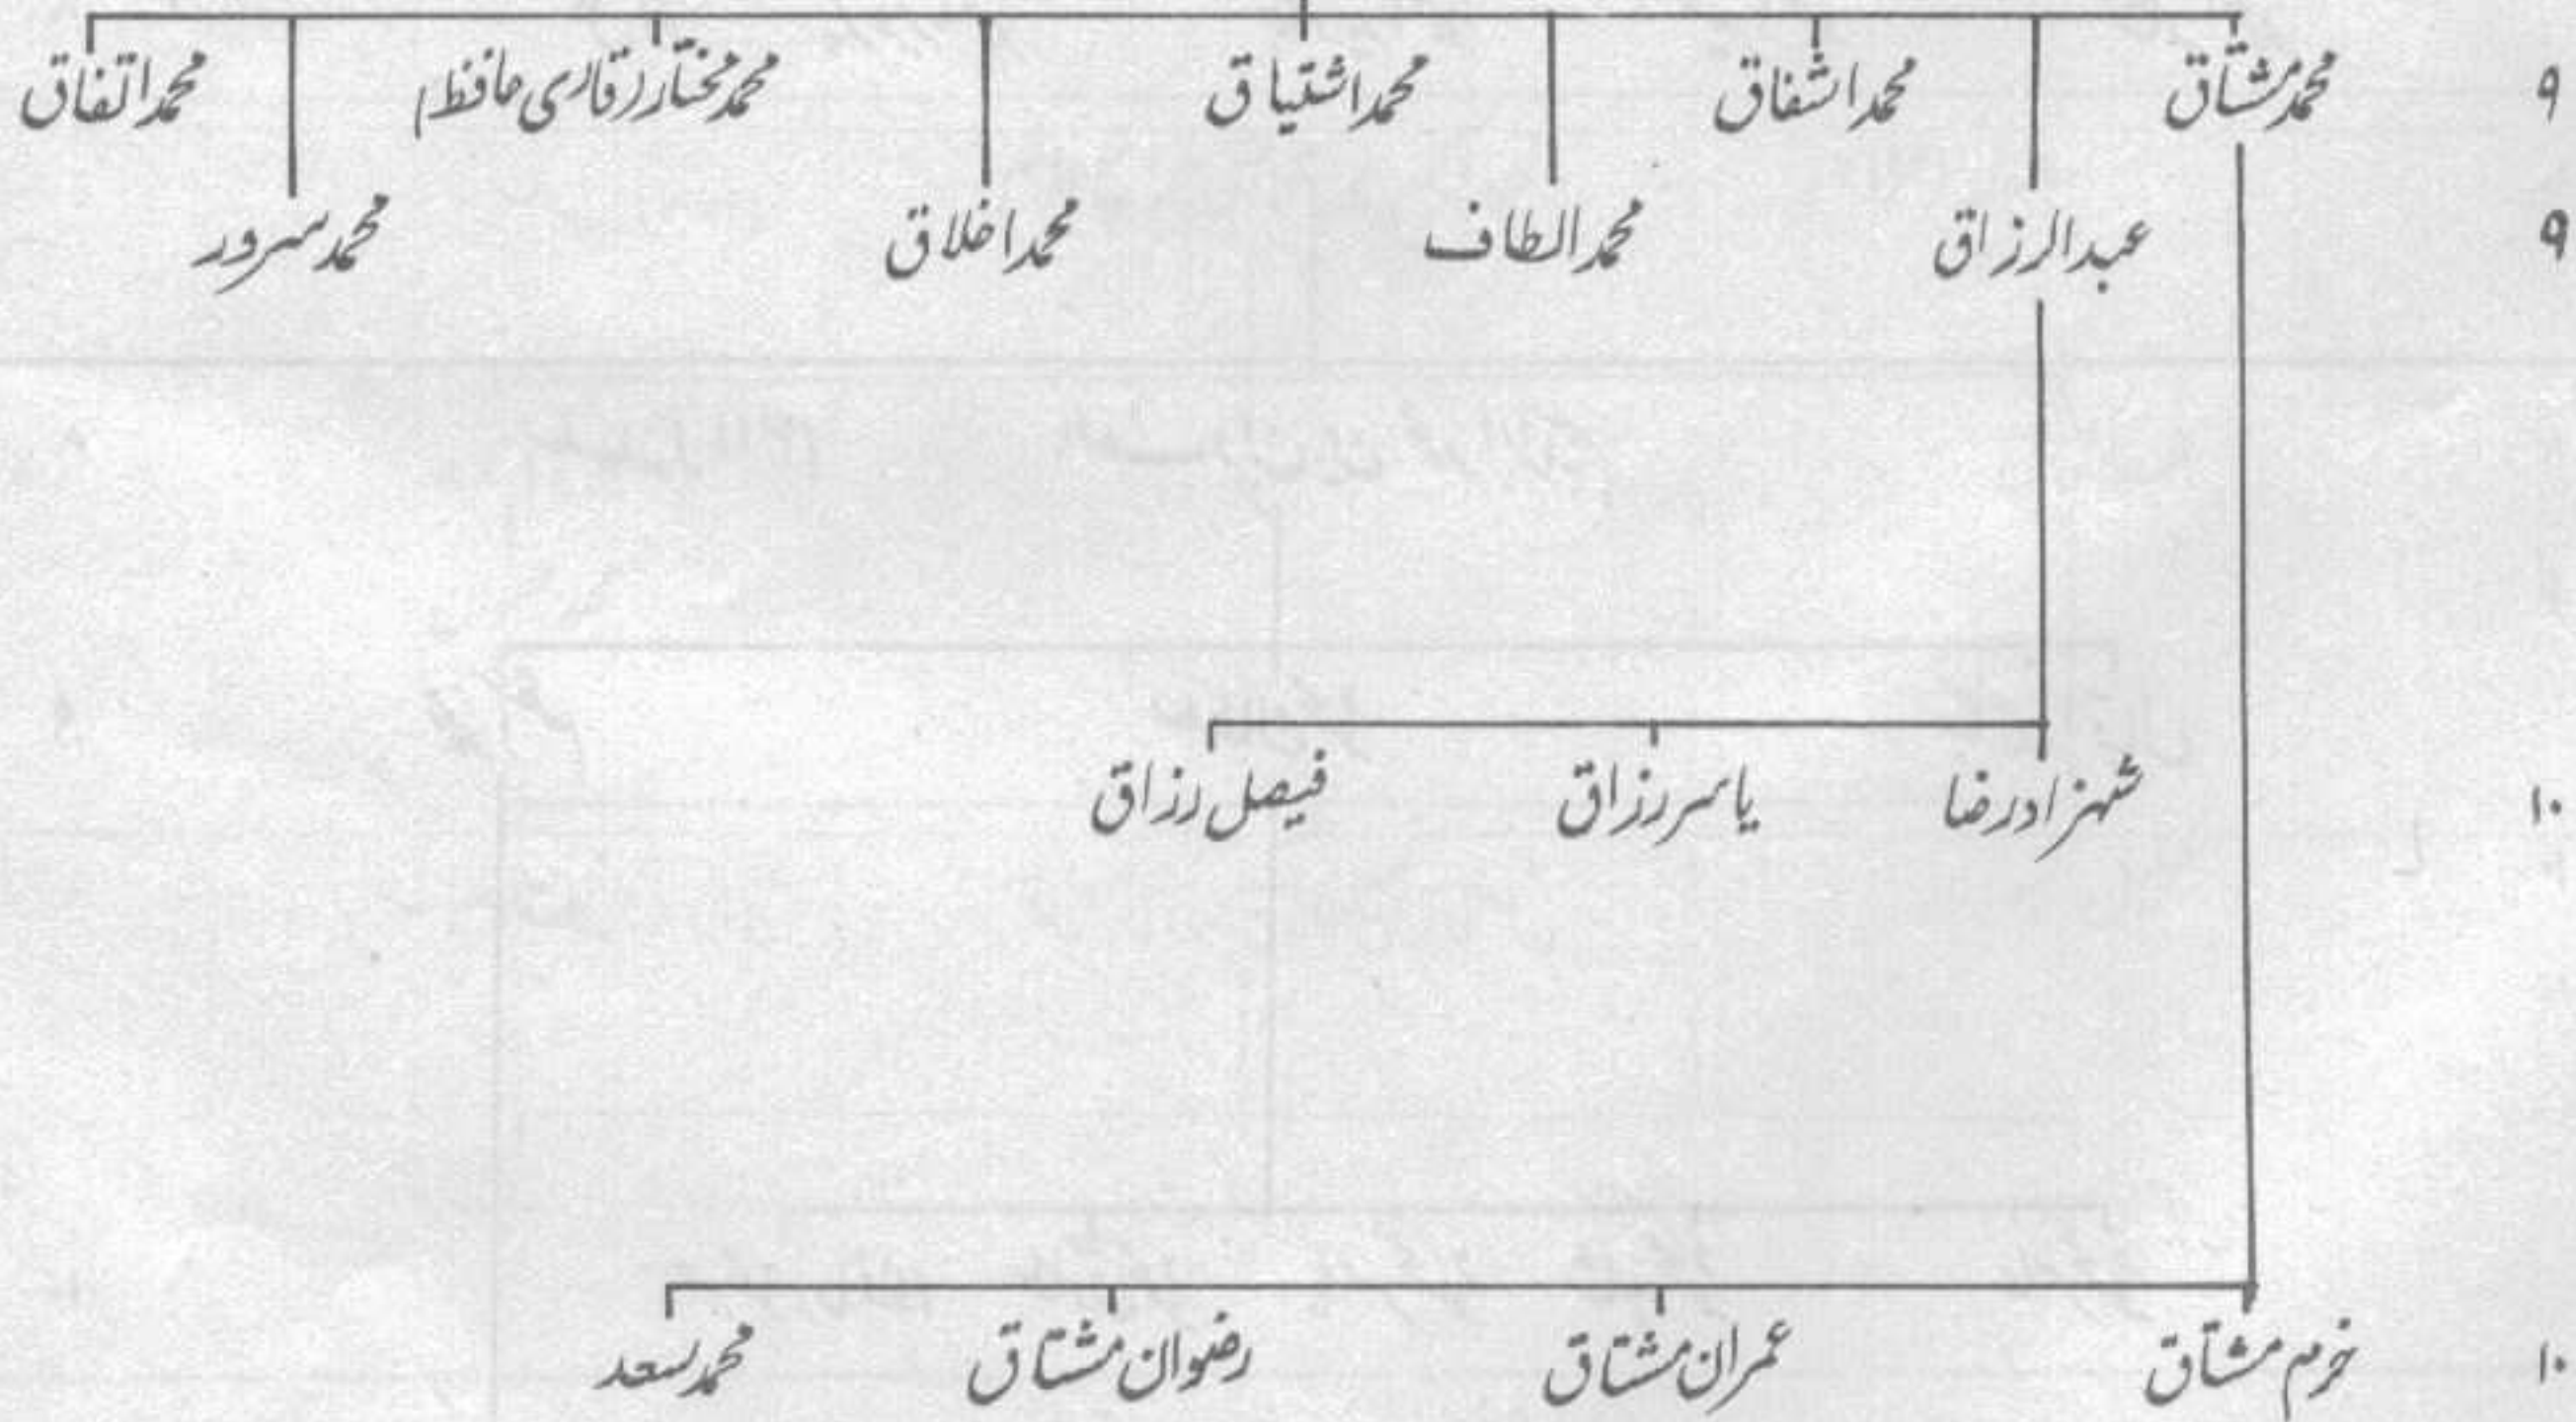 ۹ محمد مشتاق محمد اشفاق محمد اشتیاق محمد مختار (قاری حافظ) محمد اتفاق
۹ عبدالرزاق محمد الطاف محمد اخلاق محمد سرور
۱۰ شہزاد رضا یاسر رزاق فیصل رزاق
۱۰ خرم مشتاق عمران مشتاق رضوان مشتاق محمد سعد